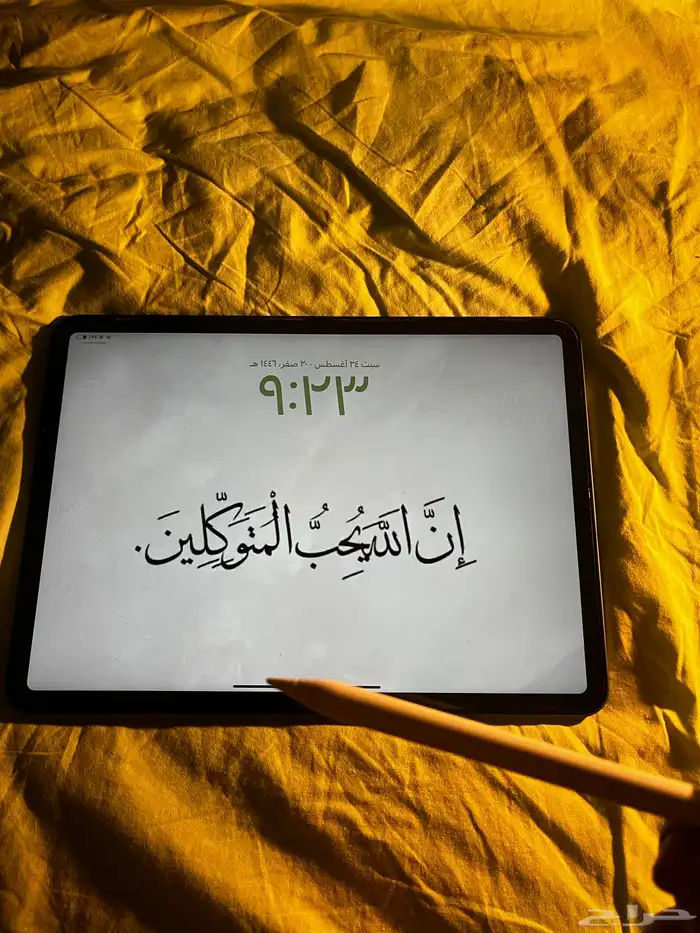 سبت ٢٤ أغسطس ٢٠٠ صفر، ١٤٤٦ هـ
٩:٢٣
إِنَّ اللَّهَ يُحِبُّ الْمُتَوَكِّلِينَ.
حراج